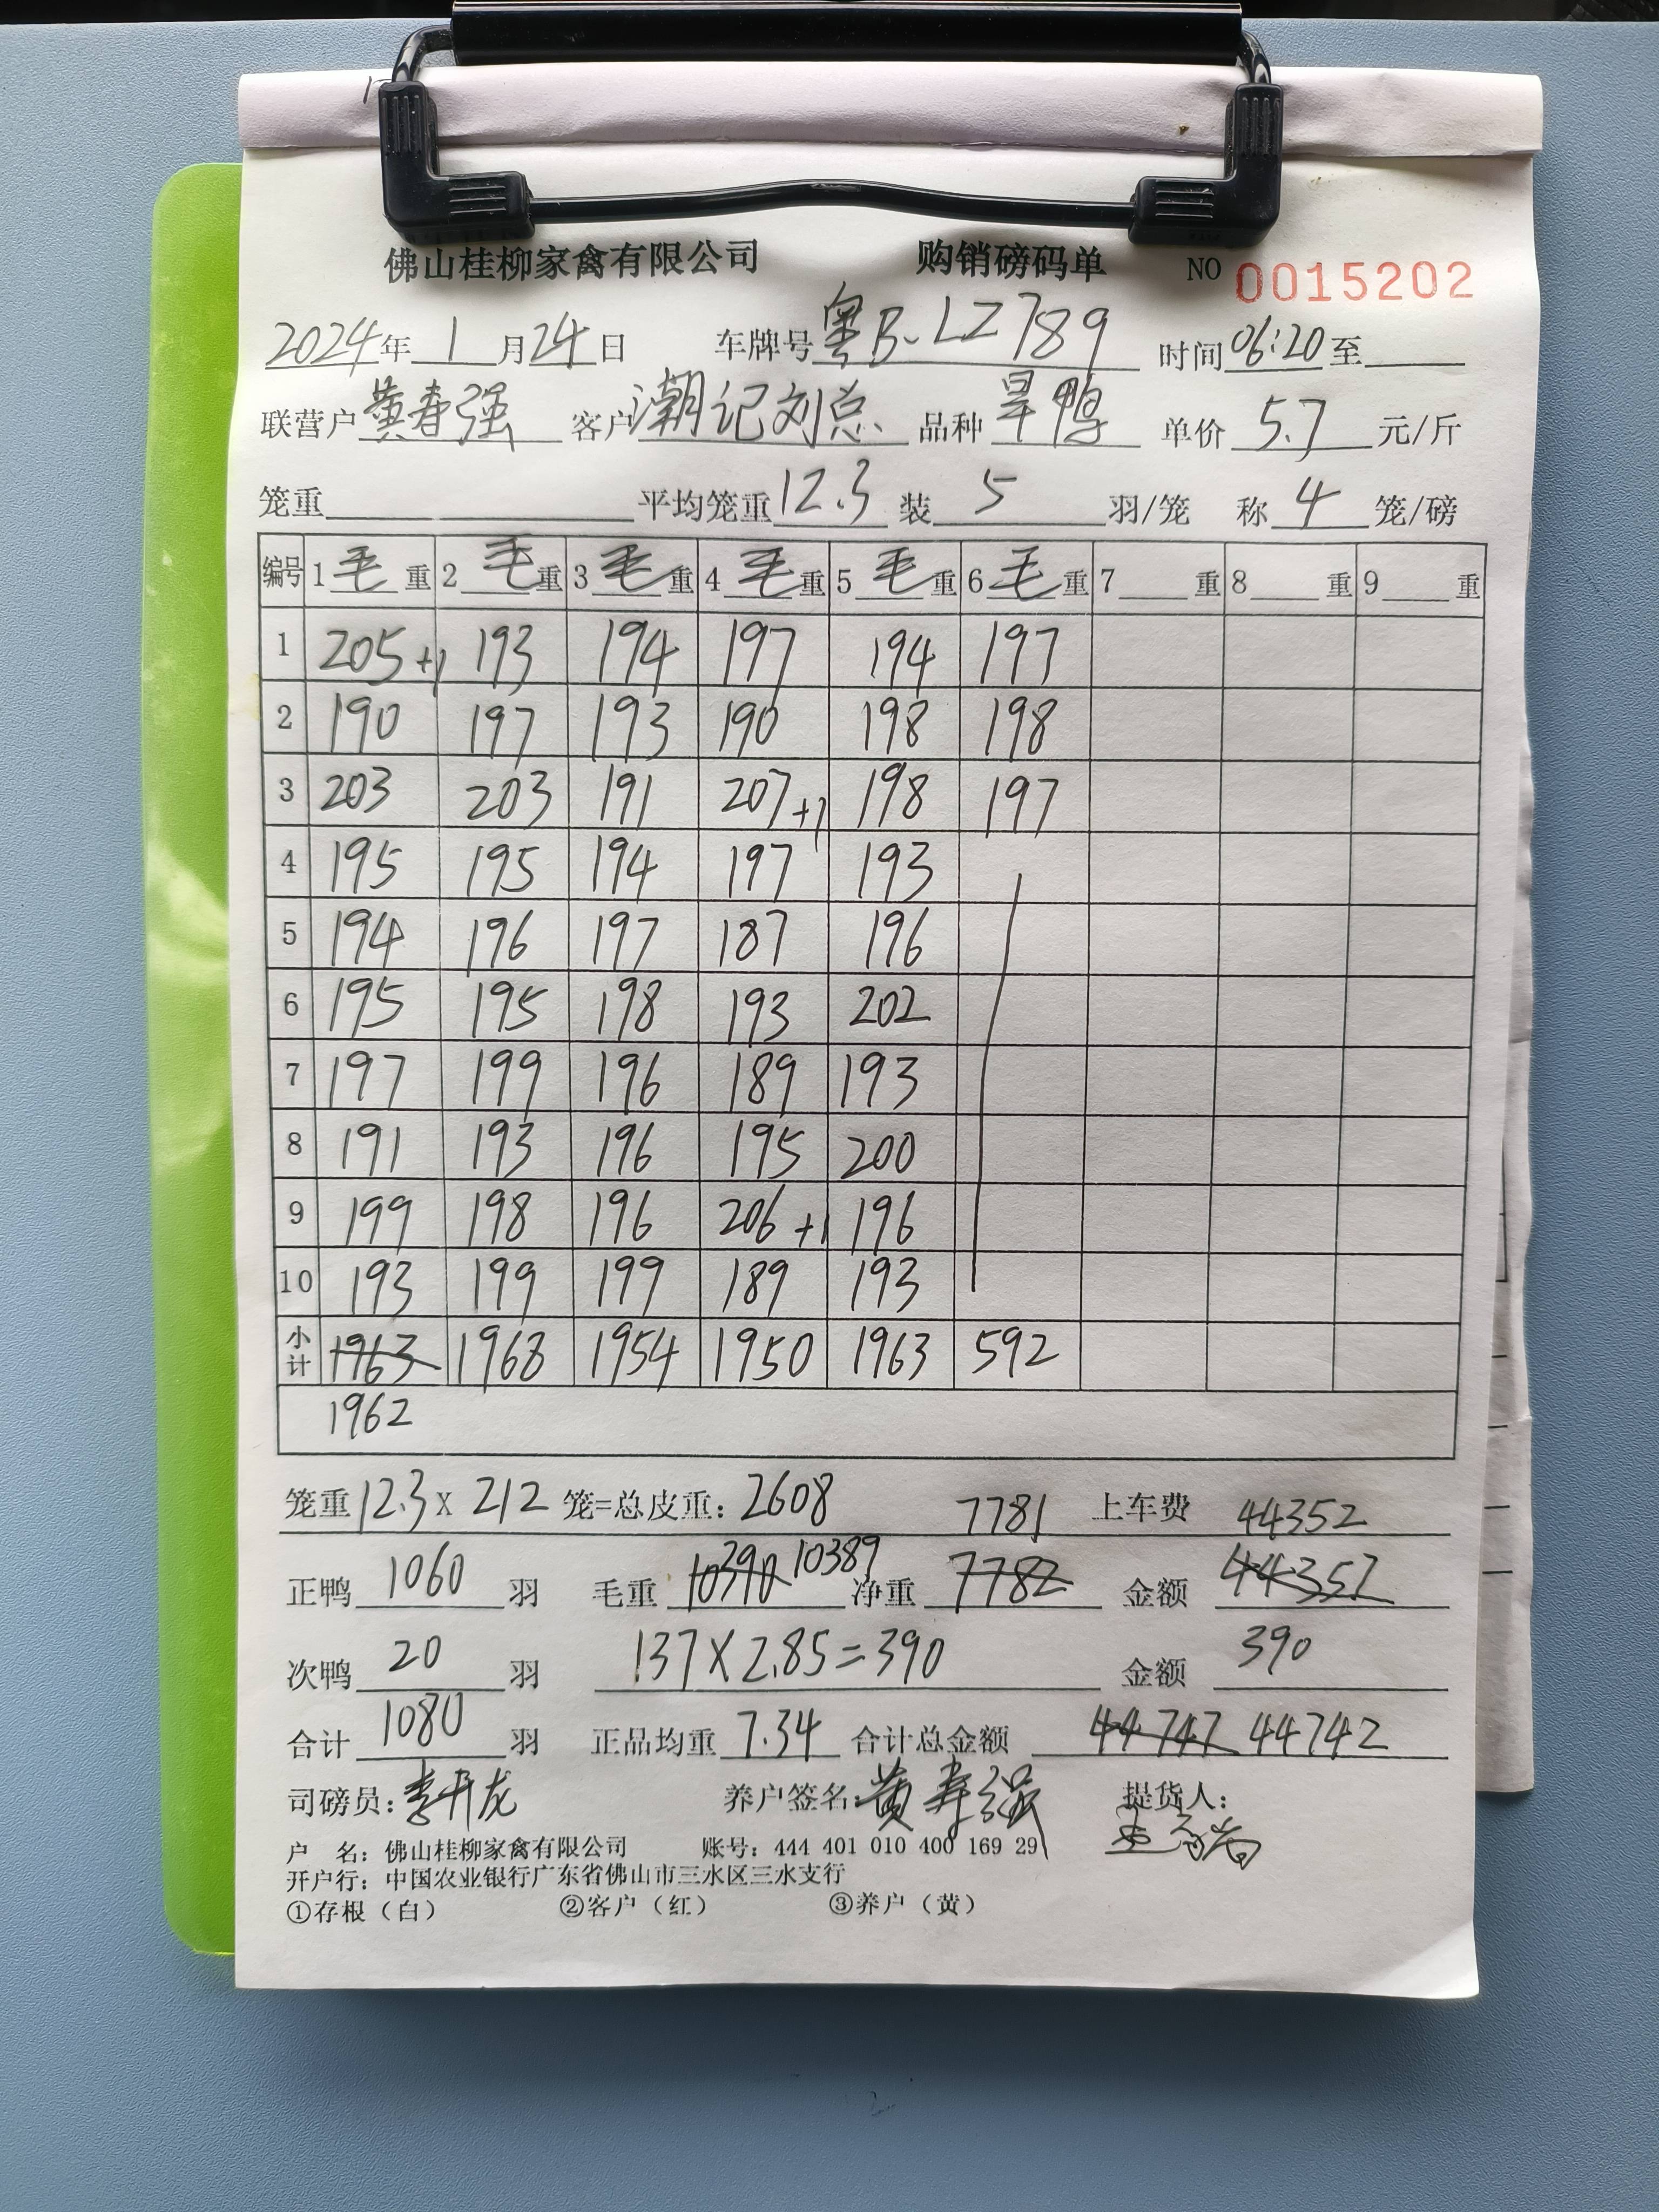 佛山桂柳家禽有限公司 购销磅码单 NO 0015202
2024年 1 月24日 车牌号 粤B·LZ789 时间 06:20 至
联营户 黄春强 客户 潮记刘总 品种 旱鸭 单价 5.7 元/斤
笼重 平均笼重 12.3 装 5 羽/笼 称 4 笼/磅
编号 1 毛 重 2 毛 重 3 毛 重 4 毛 重 5 毛 重 6 毛 重 7 重 8 重 9 重
1 205+1 193 194 197 194 197
2 190 197 193 190 198 198
3 203 203 191 207+1 198 197
4 195 195 194 197 193
5 194 196 197 187 196
6 195 195 198 193 202
7 197 199 196 189 193
8 191 193 196 195 200
9 199 198 196 206+1 196
10 193 199 199 189 193
小计 1963 1968 1954 1950 1963 592
1962
笼重 12.3 X 212 笼=总皮重: 2608 7781 上车费 44352
正鸭 1060 羽 毛重 10390 10389 净重 7782 金额 44357
次鸭 20 羽 137×2.85=390 金额 390
合计 1080 羽 正品均重 7.34 合计总金额 44747 44742
司磅员: 李开龙 养户签名: 黄春强 提货人:
户 名: 佛山桂柳家禽有限公司 账号: 444 401 010 400 169 29
开户行: 中国农业银行广东省佛山市三水区三水支行
①存根（白） ②客户（红） ③养户（黄）